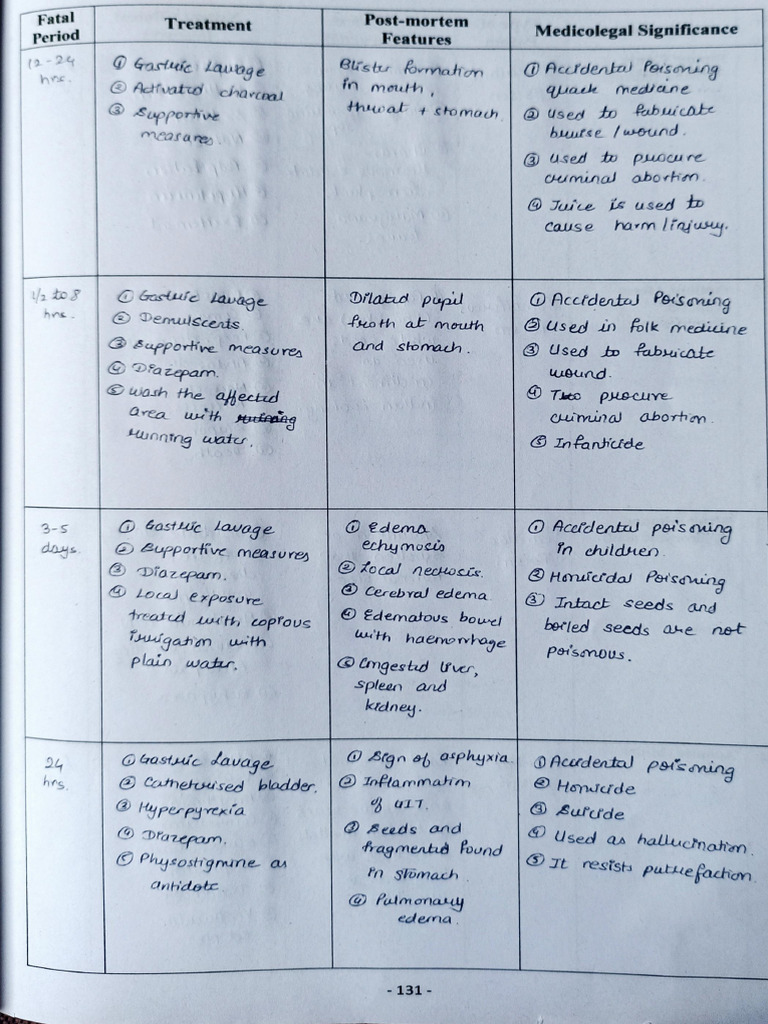 Fatal Period
Treatment
Post-mortem Features
Medicolegal Significance
12-24
hrs.
① Gastric Lavage
② Activated charcoal
③ Supportive
measures.
Blister formation
in mouth,
throat + stomach.
① Accidental Poisoning
quack medicine
② Used to fabricate
bruise / wound.
③ Used to procure
criminal abortion.
④ Juice is used to
cause harm / injury.
1/2 to 8
hrs.
① Gastric Lavage
② Demulscents.
③ Supportive measures
④ Diazepam.
⑤ Wash the affected
area with
running water.
Dilated pupil
froth at mouth
and stomach.
① Accidental Poisoning
② Used in folk medicine
③ Used to fabricate
wound.
④ To procure
criminal abortion.
⑤ Infanticide
3-5
days.
① Gastric Lavage
② Supportive measures
③ Diazepam.
④ Local exposure
treated with copious
irrigation with
plain water.
① Edema
echymosis
② Local necrosis.
③ Cerebral edema
④ Edematous bowel
with haemorrhage
⑤ Congested liver,
spleen and
kidney.
① Accidental poisoning
in children.
② Homicidal Poisoning
③ Intact seeds and
boiled seeds are not
poisonous.
24
hrs.
① Gastric Lavage
② Catheterised bladder.
③ Hyperpyrexia
④ Diazepam.
⑤ Physostigmine as
antidote
① Sign of asphyxia.
② Inflammation
of GIT.
③ Seeds and
fragmented found
in stomach
④ Pulmonary
edema.
① Accidental poisoning
② Homicide
③ Suicide
④ Used as hallucination.
⑤ It resists putrefaction
- 131 -